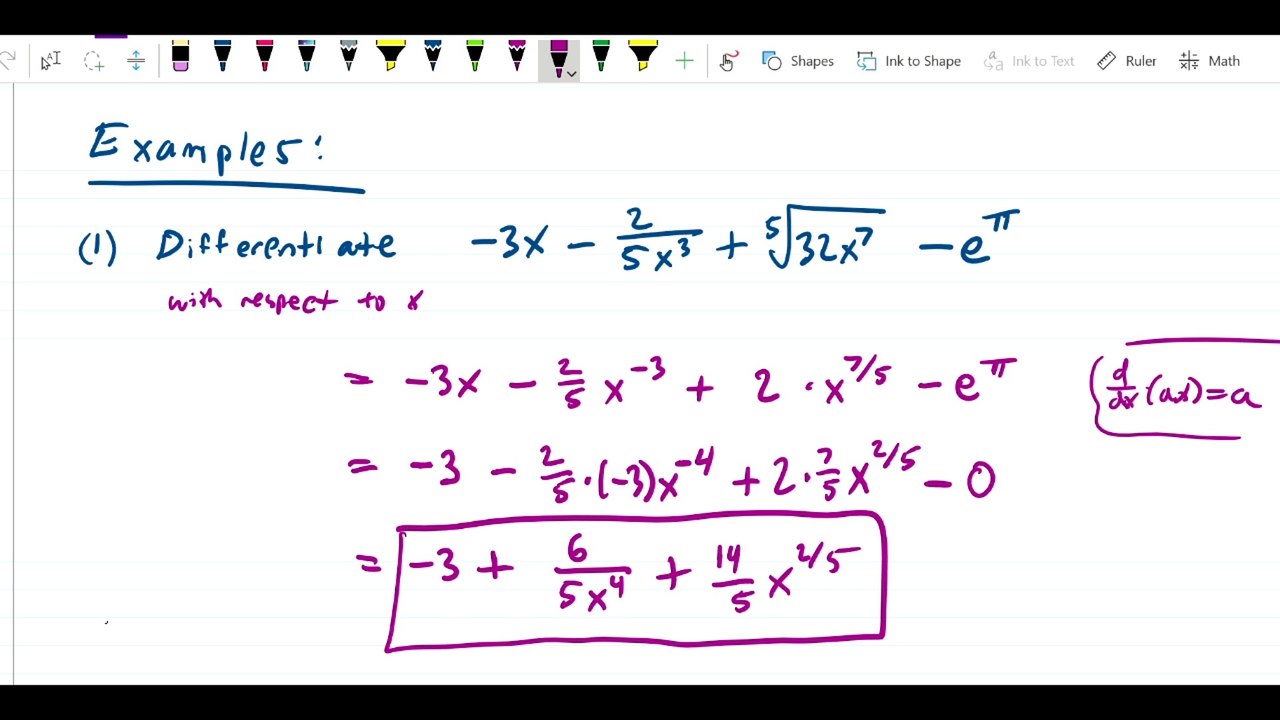 Shapes Ink to Shape Ink to Text Ruler Math
Examples:
(1) Differentiate -3x - 2/(5x³) + ⁵√(32x⁷) - e^π
with respect to x
= -3x - 2/5 x^(-3) + 2 · x^(7/5) - e^π
(d/dx (ax) = a
= -3 - 2/5 · (-3)x^(-4) + 2 · 7/5 x^(2/5) - 0
= -3 + 6/(5x⁴) + 14/5 x^(2/5)